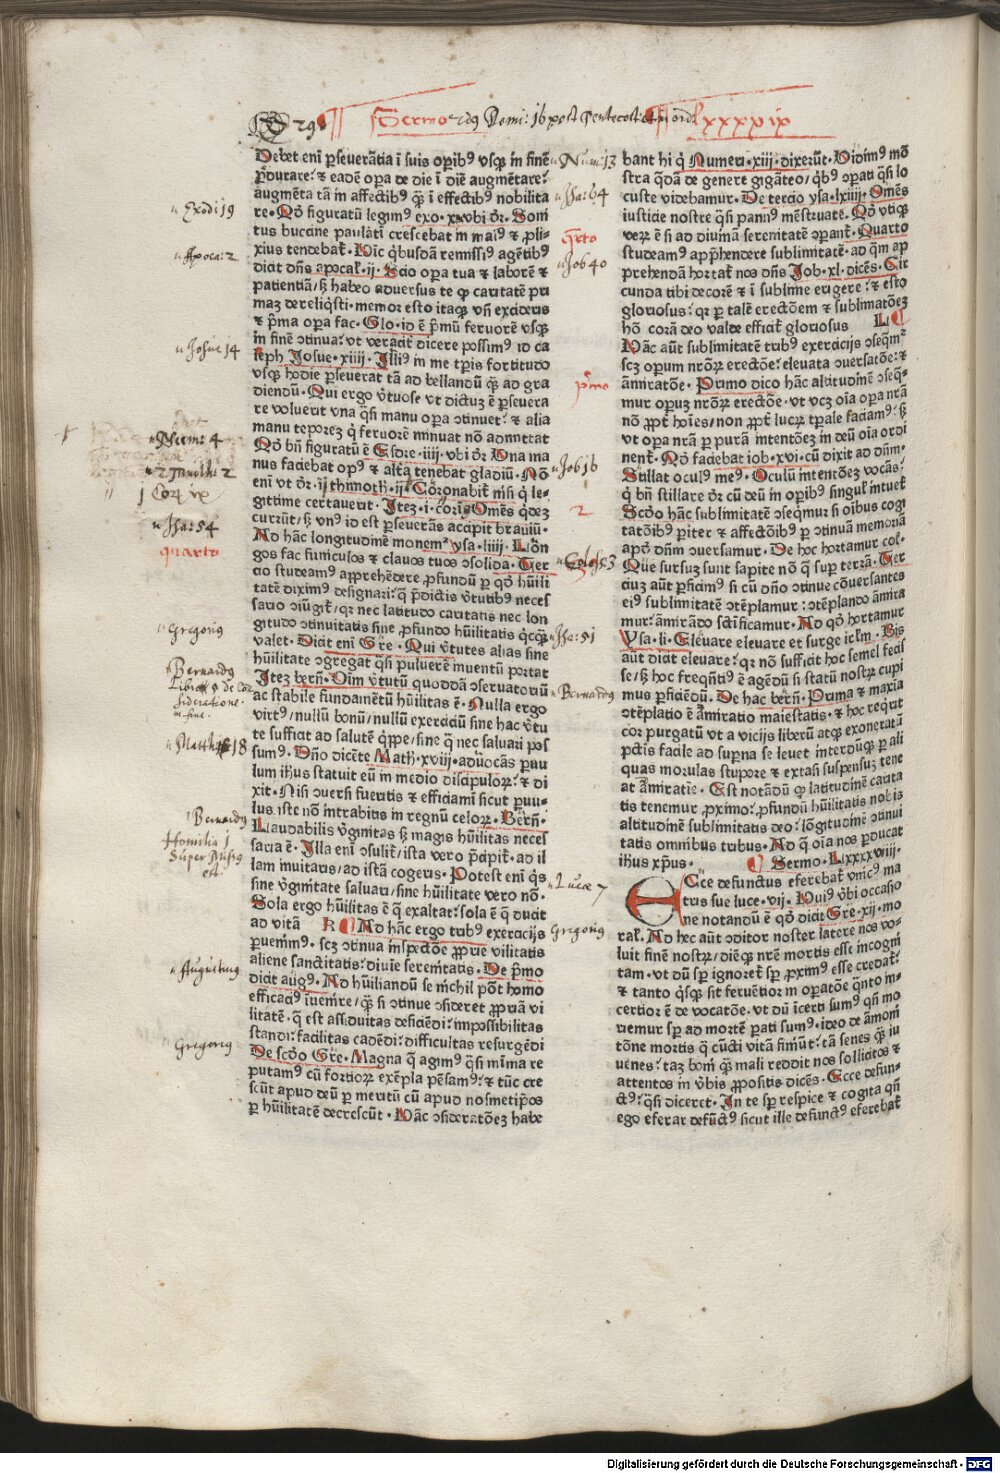 Sermo 2dus Domi: 16 post Pentecost: et in ord: lxxxxix
Debet eni ꝑseuerãtia ĩ suis oꝑib⁹ vsqꝫ in finẽ
ꝑdurare: ⁊ eadẽ oꝑa de die ĩ diẽ augmẽtare:
augmẽta tã in affectib⁹ q̃ꝫ ĩ effectib⁹ nobilita
re. Qđ figuratũ legim⁹ exo. xix vbi dr̃. Soni
tus bucine paulati crescebat in mai⁹ ⁊ ꝓli-
xius tendebat̃. Hĩc q̇busdã remissi⁹ agẽtib⁹
dicit dñs apocal̃. ij. Scio oꝑa tua ⁊ laborẽ ⁊
patientiã/ sꝫ habeo aduersus te ꝙ caritatẽ pri
maꝫ dereliq̇sti. memor esto itaqꝫ vñ excideris
⁊ p̃ma oꝑa fac. Glo. id ẽ p̃mũ feruorẽ vsqꝫ
in finẽ ↄtinua: vt veracit̃ dicere possim⁹ id ca
leph Josue. xiiij. Illi⁹ in me tp̃is fortitudo
vsqꝫ hodie ꝑseuerat tã ad bellandũ q̃ꝫ ad gra
diendũ. Qui ergo v̾tuose vt dictuꝫ ẽ ꝑseuera
re voluerit vna q̃si manu oꝑa ↄtinuet: ⁊ alia
manu teporeꝫ q̇ feruorẽ minuat nõ admittat
Qđ bñ figuratũ ẽ Esdre. iiij. vbi dr̃. Vna ma
nus faciebat op⁹ ⁊ alta tenebat gladiũ. Nõ
eni vt dr̃. ij thimoth. ij. Coronabit̃ nisi q̇ le-
gitime certauerit. Iteꝫ. i. corin. Omẽs q̇deꝫ
currũt/ sꝫ vn⁹ id est ꝑseuerãs accipit brauiũ.
Ad hãc longitudinẽ monem̃ ysa. liiij. Lõn
gos fac funiculos ⁊ clauos tuos ↄsolida. Ter
cio studeam⁹ apprehẽdere ꝓfundũ ꝑ qđ hũili
tatẽ diximꝰ designari: q̇ p̃dictis v̾tutib⁹ neces
sario ↄiũgit̃/ qꝛ nec latitudo caritatis nec lon
gitudo ↄtinuitatis sine ꝓfundo hũilitatis q̇cqꝫ
valet. Dicit eni Gre. Qui v̾tutes alias sine
hũilitate ↄgregat q̃si puluerẽ inuentũ portat
Iteꝫ berñ. Oim v̾tutũ quoddã ↄseruatoriũ
ac stabile fundamẽtũ hũilitas ẽ. Nulla ergo
virt⁹/ nullũ bonũ/ nullũ exerciciũ sine hac v̾tu
te sufficit ad salutẽ q̇ppe/ sine q̃ nec saluari pos
sum⁹. Dño dicẽte Math. xviij. aduocãs paruu
lum ihus statuit eũ in medio discipuloꝝ: ⁊ di
xit. Nisi ↄuersi fueritis ⁊ efficiami sicut ꝑuu-
lus iste nõ intrabitis in regnũ celoꝝ. Berñ.
Laudabilis v̾ginitas sꝫ magis hũilitas neces
saria ẽ. Illa eni ↄsulit̃/ ista vero p̃cipit̃. ad il
lam inuitaris/ ad istã cogeris. Potest eni q̇s
sine v̾ginitate saluari/ sine hũilitate vero nõ.
Sola ergo hũilitas ẽ q̃ exaltat: sola ẽ q̃ ducit
ad vitã K Ad hãc ergo trib⁹ exercicijs
ꝑuenim⁹. scꝫ ↄtinua inspectõe ꝓprie vilitatis
aliene sanctitatis: diuine serenitatis. De p̃mo
dicit aug⁹. Ad hũiliandũ se nichil põt homo
efficaci⁹ iuenire/ q̃ꝫ si ↄtinue ↄsideret ꝓpriã vi
litatẽ. q̃ est assiduitas deficiẽdi: impossibilitas
standi: facilitas cadẽdi: difficultas resurgẽdi
De scđo Gre. Magna q̃ agim⁹ q̃si mĩma re
putam⁹ cũ fortioꝝ exẽpla pẽsam⁹: ⁊ tũc cre
scũt apud deũ ꝑ meritũ cũ apud nosmetip̃os
ꝑ hũilitatẽ decrescũt. Hãc ↄsideratõeꝫ habe
bant hi q̇ Numeri. xiij. dixerũt. Vidim⁹ mõ
stra q̃dã de genere gigãteo/ q̇b⁹ ↄꝑati q̃si lo
custe videbamur. De tercio ysa. lxiiij. Omẽs
iusticie nostre q̃si panni mẽstruate. Qđ vtiqꝫ
veꝝ ẽ si ad diuinã serenitatẽ ↄꝑant̃. Quarto
studeam⁹ app̃hendere sublimitatẽ. ad q̃m ap
prehendã hortat̃ nos dñs Job. xl. dicẽs. Cir
cunda tibi decorẽ ⁊ ĩ sublime erigere: ⁊ esto
gloriosus: qꝛ ꝑ talẽ erectõem ⁊ sublimatõeꝫ
hõ corã deo valde efficit̃ gloriosus L
Hãc aũt sublimitatẽ trib⁹ exercicijs ↄseq̃m̃
scꝫ opeꝝ nr̃oꝝ erectõe: eleuata ↄuersatõe: ⁊
ãmiratõe. Primo dico hãc altitudinẽ ↄseq̃-
mur operꝫ nr̃oꝝ erectõe. vt vcꝫ oĩa oꝑa nr̃a
nõ ꝓpt̃ hoĩes/ non ꝓpt̃ lucꝝ tp̃ale faciam⁹: sꝫ
vt oꝑa nr̃a ꝑ purã intentõeꝫ in deũ oĩa ordi
nent̃. Qđ faciebat iob. xvi. cũ dixit ad dñm.
Stillat ocul⁹ me⁹. Oculũ intentõeꝫ vocãs.
q̇ bñ stillare dr̃ cũ deũ in oꝑib⁹ singul̃ intuet̃
Scđo hãc sublimitatẽ ↄseq̃mur si oibus cogi
tatõib⁹ ꝑiter ⁊ affectõib⁹ ꝑ ↄtinuã memoriã
apđ dñm ↄuersamur. De hoc hortamur col̃.
Que sursuꝫ sunt sapite nõ q̃ suꝑ terrã. Ter
ciuꝫ aũt ꝑficim⁹ si cũ dño ↄtinue cõuersantes
ei⁹ sublimitatẽ ↄtẽplamur: ↄtẽplando ãmira
mur: amirãdo sc̃tificamur. Ad qđ hortamur
Ysa. li. Eleuare eleuare et surge irl̃m. Bis
aũt dicit eleuare: qꝛ nõ sufficit hoc semel fecis
se/ sꝫ hoc freq̃nti⁹ ẽ agẽdũ si statũ nostꝝ cupi
mus ꝑficiẽdũ. De hac berñ. Prima ⁊ maxia
ↄtẽplatio ẽ ãmiratio maiestatis. ⁊ hoc requirit
cor purgatũ vt a vicijs liberũ atqꝫ exoneratũ
pctĩs facile ad suꝑna se leuet interdũqꝫ ꝑ ali
quas morulas stupore ⁊ extasi suspensuꝫ tene
at ãmiratie. Est notãdũ ꝙ latitudinẽ carita
tis tenemur ꝓximo: ꝓfundũ hũilitatis nobis
altitudinẽ sublimitatis deo: lõgitudinẽ ↄtinui
tatis omnibus tribus. Ad q̃ oĩa nos ꝑducat
ihũs xp̃us. Sermo. Lxxxxviij.
Ecce defunctus efferebat̃ vnic⁹ ma
tris sue luce. vij. Huiꝰ v̾bi occasio
ne notandũ ẽ qđ dicit Gre. xij. mo
ral̃. Ad hec aũt ↄditor noster latere nos vo-
luit finẽ nostꝝ/ dieqꝫ nr̃e mortis esse incogni
tam. vt dũ sp̃ ignoret̃ sp̃ ꝓxim⁹ esse credat̃:
⁊ tanto q̇sqꝫ sit feruẽtior in oꝑatõe q̃nto in-
certior ẽ de vocatõe. vt dũ ĩcerti sum⁹ qñ mo
riemur sp̃ ad mortẽ ꝑati sum⁹. ideo de ãmoni
tõne mortis q̃ cũcti vitã finiũt: tã senes q̃ꝫ iu
uenes: taꝫ boni q̃ꝫ mali reddit nos sollicitos ⁊
attentos in v̾bis ꝓpositis dicẽs. Ecce defun-
ct⁹: q̃si diceret. In te sp̃ respice ⁊ cogita qñ
ego eferar defũct⁹ sicut ille defunct⁹ eferebat̃
Exodi 19
Apoca: 2
Josue 14
Neemie 4
2 Timoth: 2
1 Cor: ix
Isai: 54
quarto
Gregorius
Bernardus
Libro 5 de Con
sideratione.
in fine.
Matth: 18
Bernardus
Homilia 1
Super Missus
est.
Augustinus
Gregorius
Num: 13
Isai: 64
Job 40
pri̾mo
Job 16
2
Coloss: 3
Isai: 51
Bernardus
Lucæ 7
Gregorius
Digitalisierung gefördert durch die Deutsche Forschungsgemeinschaft - DFG